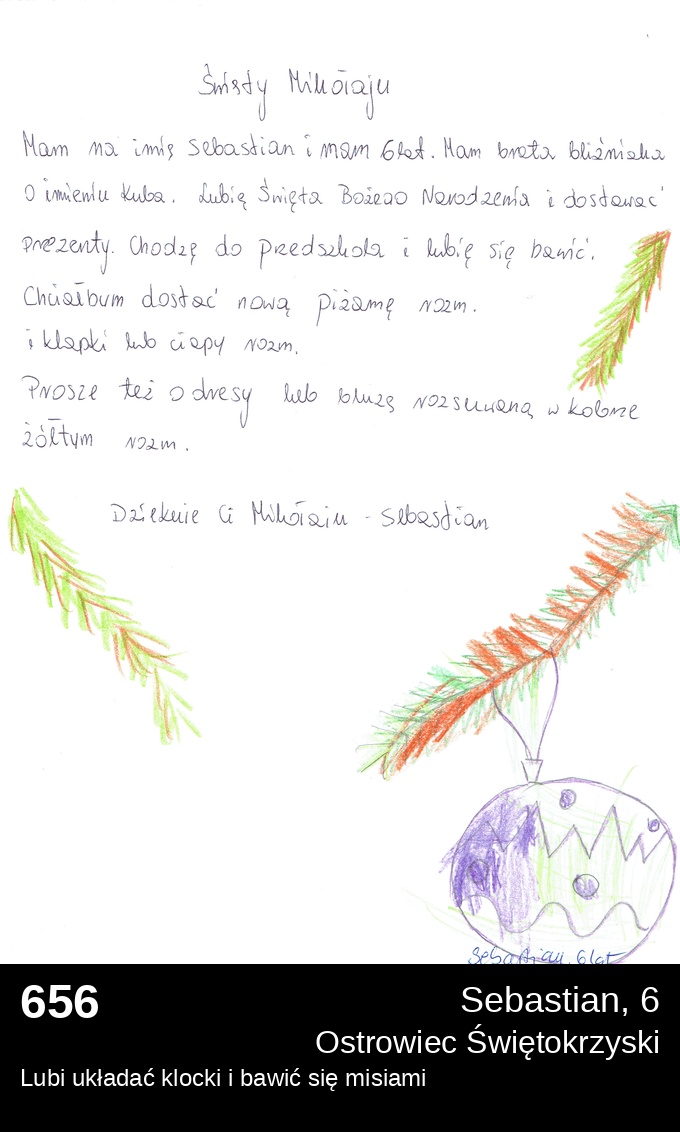 Święty Mikołaju
Mam na imię Sebastian i mam 6 lat. Mam brata bliźniaka
O imieniu Kuba. Lubię Święta Bożego Narodzenia i dostawać
prezenty. Chodzę do przedszkola i lubię się bawić.
Chciałbym dostać nową piżamę rozm.
i klapki lub ciapy rozm.
Prosze też o dresy lub bluzę rozsuwaną w kolorze
żółtym rozm.
Dziekuie Ci Mikołaiu - Sebastian
Sebastian, 6 lat
656
Sebastian, 6
Ostrowiec Świętokrzyski
Lubi układać klocki i bawić się misiami